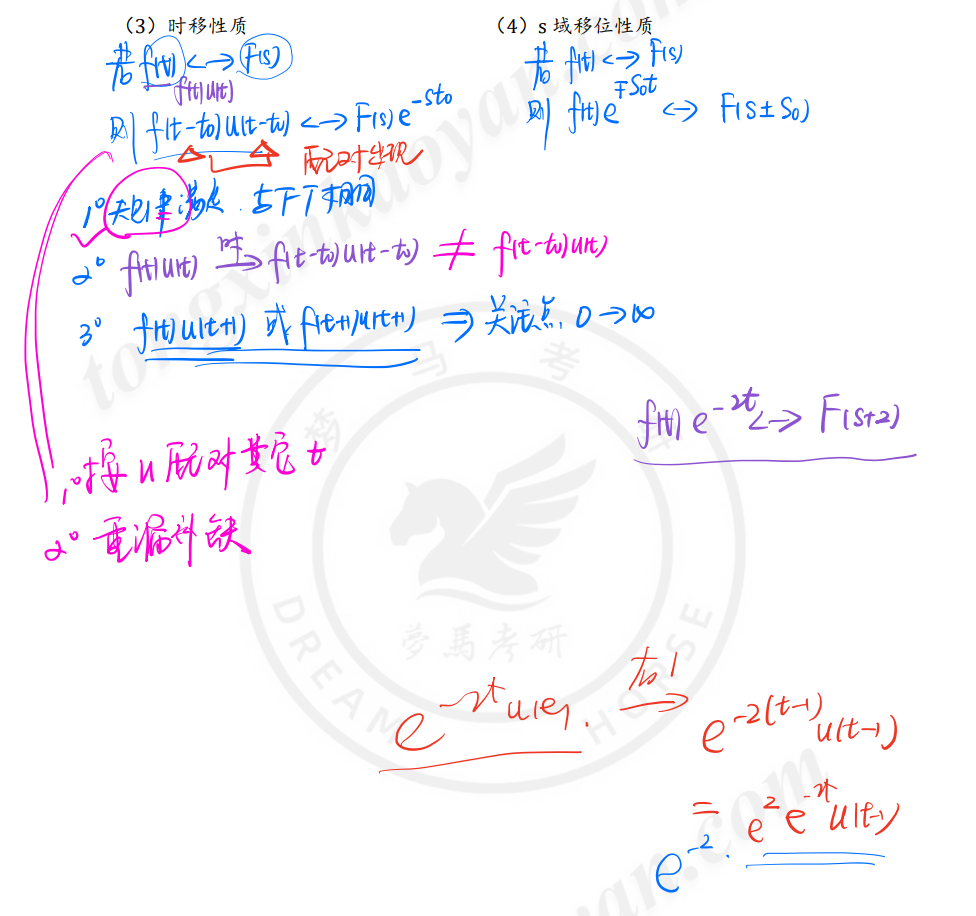 (3)时移性质
若 f(t) <-> F(s)
f(t)u(t)
则 f(t-t₀)u(t-t₀) <-> F(s)e^{-st₀}
配对出现
1° 与FT相同
2° f(t)u(t) 时→ f(t-t₀)u(t-t₀) ≠ f(t-t₀)u(t)
3° f(t)u(t+1) 或 f(t+1)u(t+1) ⇒ 关注点 0→∞
1° 按 u 配对其它 t
2° 重漏补缺
(4)s 域移位性质
若 f(t) <-> F(s)
则 f(t)e^{∓s₀t} <-> F(s±s₀)
f(t)e^{-2t} <-> F(s+2)
e^{-2t}u(t). 右1→ e^{-2(t-1)}u(t-1)
= e^{2}e^{-2t}u(t-1)
e^{-2}.
tongxinkaoyan.com
梦马考研
夢馬考研
DREAM HORSE